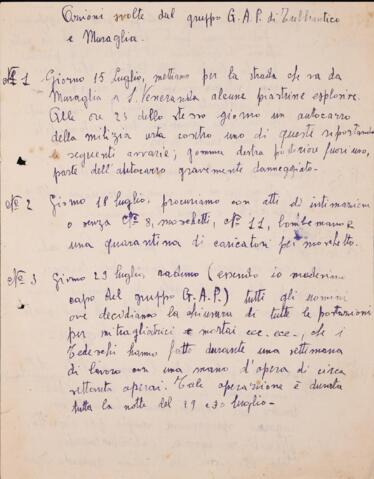 Azioni svolte dal gruppo G.A.P. di Trebbiantico
e Muraglia.
N° 1 Giorno 15 luglio, mettiamo per la strada che va da
Muraglia a S. Veneranda alcune piastrine esplosive.
Alle ore 23 dello stesso giorno un autocarro
della milizia urta contro uno di queste riportando
seguenti avvarie; gomma destra posteriore fuori uso,
parte dell'autocarro gravemente danneggiato-
N° 2 Giorno 18 luglio, procuriamo con atti di intimazione
o senza N° 8, moschetti, N° 11, bombe mano e
una quarantina di caricatori per moschetto.
N° 3 Giorno 29 luglio, raduno (essendo io medesimo
capo del gruppo G.A.P.) tutti gli uomini
ove decidiamo la chiusura di tutte le postazioni
per mitragliatrici e mortai ecc. ecc., che i
Tedeschi hanno fatto durante una settimana
di lavoro con una mano d'opera di circa
settanta operai. Tale operazione è durata
tutta la notte del 29 e 30 luglio-